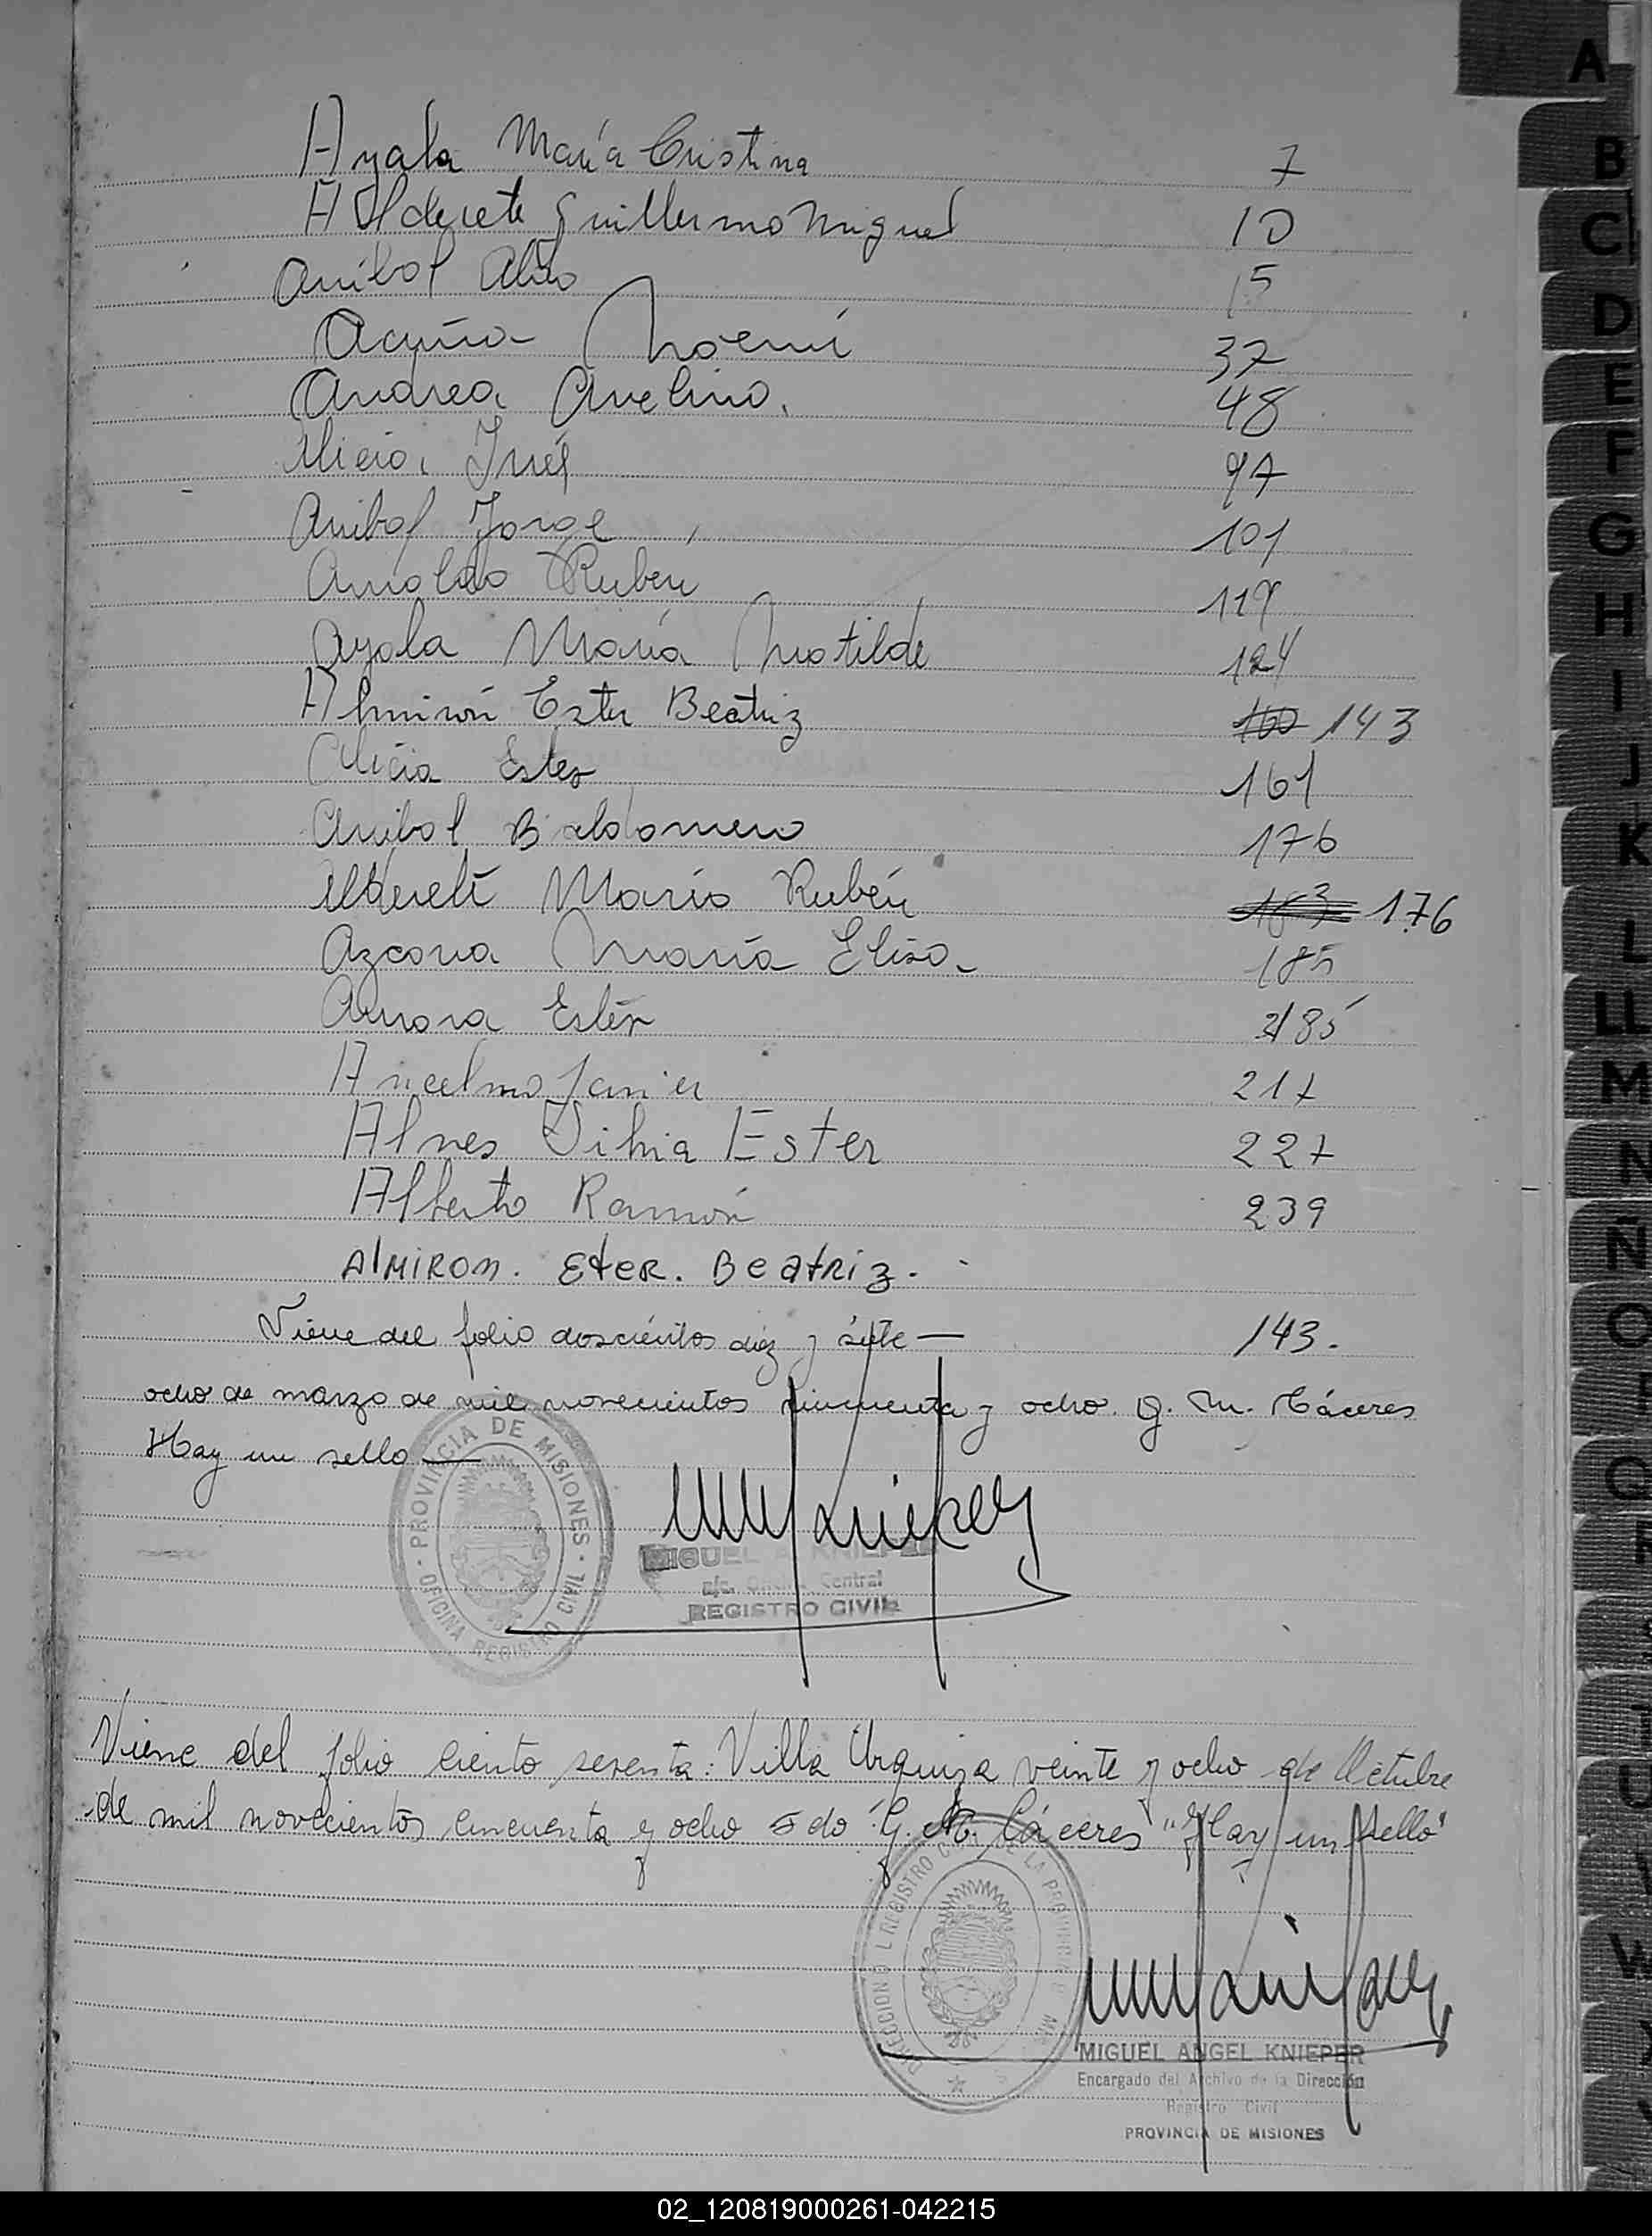 Ayala María Cristina 7
Alderete Guillermo Miguel 10
Anibal Aldo 15
Acuña Noemí 37
Andrea Avelino. 48
Alicia Inés 97
Anibal Jorge 101
Arnoldo Rubén 119
Ayala María Matilde 124
Almirón Ester Beatriz 160 143
Alicia Ester 161
Anibal Baldomero 176
Mario Rubén 163 176
Azcona María Elisa 185
Aurora Ester 185
Ancelmo Javier 217
Alves Silvia Ester 227
Alberto Ramón 239
AlMIRON. EteR. BeatRiz.
Viene del folio doscientos diez y siete — 143.
ocho de marzo de mil novecientos cincuenta y ocho. G. M. Cáceres
Hay un sello —
PROVINCIA DE MISIONES
OFICINA REGISTRO CIVIL
MIGUEL A. KNIEPER
Central
REGISTRO CIVIL
Viene del folio ciento sesenta: Villa Urquiza veinte y ocho de Octubre
de mil novecientos cincuenta y ocho Fdo "G. M. Cáceres "Hay un sello"
DIRECCION DEL REGISTRO CIVIL DE LA PROVINCIA DE
MIGUEL ANGEL KNIEPER
Encargado del Archivo de la Dirección
Registro Civil
PROVINCIA DE MISIONES
A
B
C
D
E
F
G
H
I
J
K
L
LL
M
N
Ñ
O
Q
U
W
02_120819000261-042215